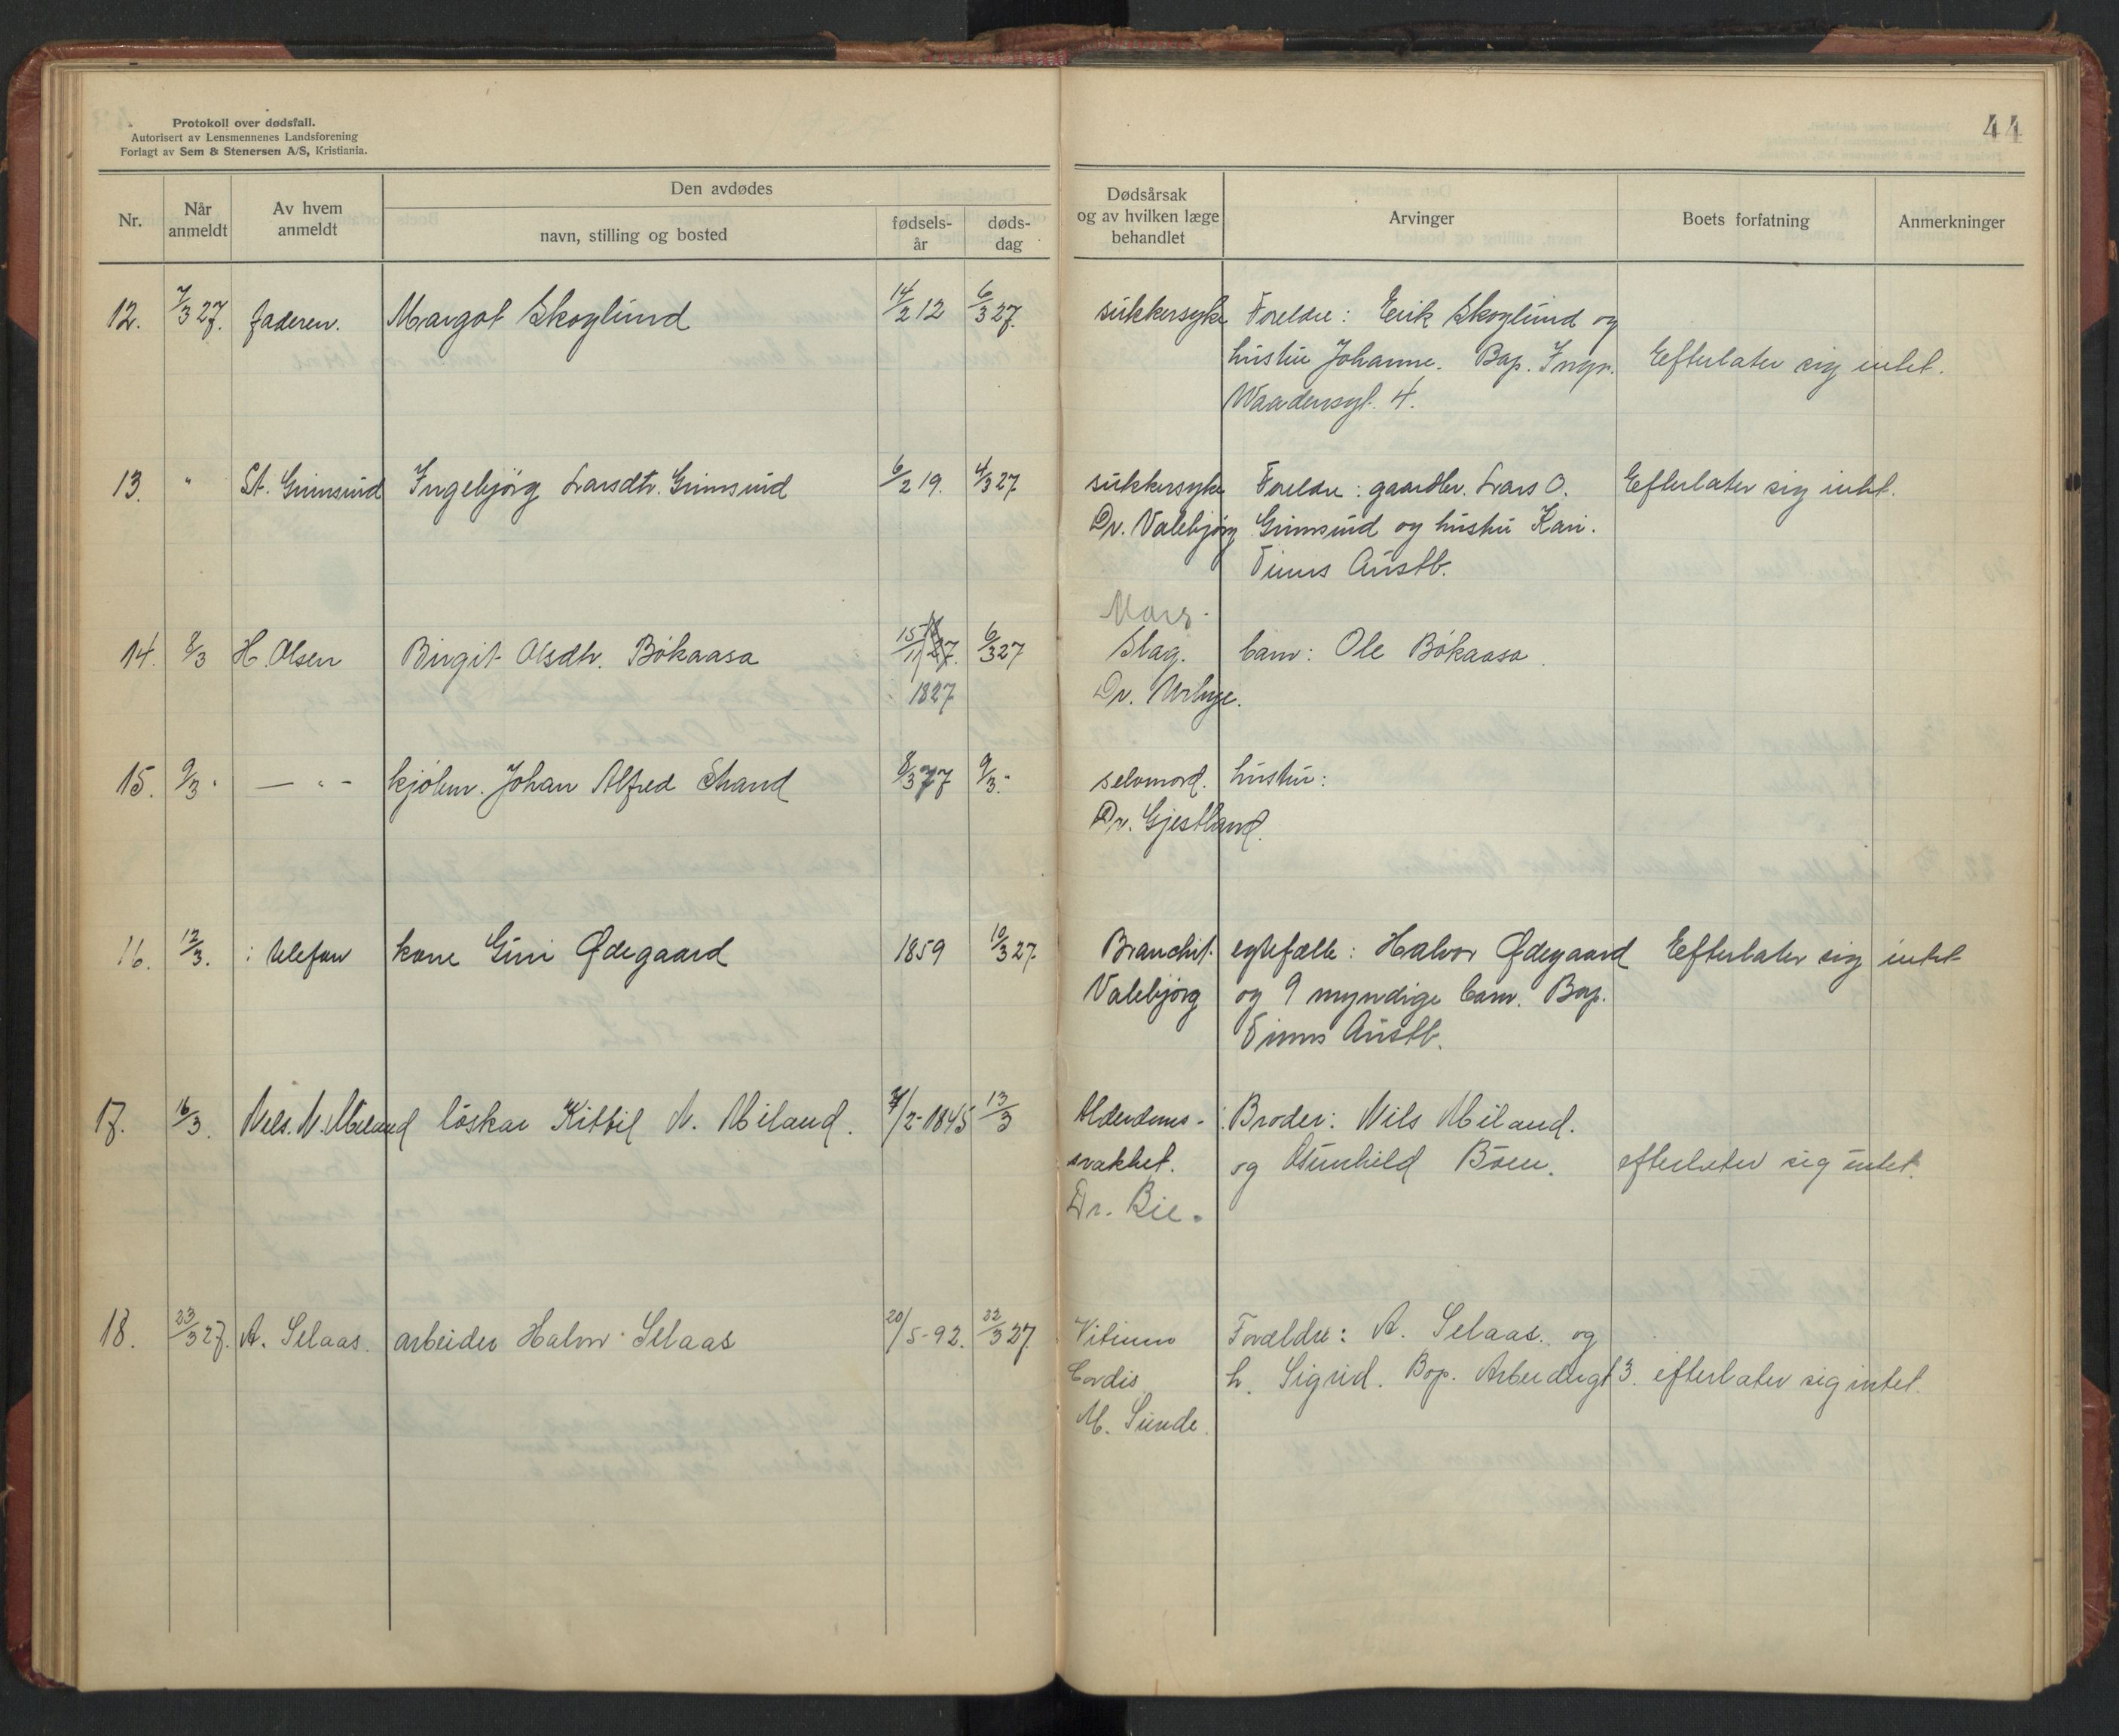 Protokoll over dødsfall.
Autorisert av Lensmennenes Landsforening
Forlagt av Sem & Stenersen A/S, Kristiania.
44
Nr.
Når anmeldt
Av hvem anmeldt
Den avdødes
navn, stilling og bosted
fødsels-år
døds-dag
Dødsårsak og av hvilken læge behandlet
Arvinger
Boets forfatning
Anmerkninger
12. 7/3 27. faderen. Margot Skoglund 14/2 12 6/3 27. sukkersyke Foreldre: Erik Skoglund og
hustru Johanne. Bop. Efterlater sig intet.
4.
13. " St. Grimsrud Ingebjørg Larsdtr. Grimsrud 6/2 19. 4/3 27 sukkersyke Foreldre: gaardbr. Lars O. Efterlater sig intet.
Dr. Valebjørg Grimsrud og hustru Kari.
Tinns Austb.
14. 8/3 H. Olsen Birgit Olsdtr. Bökaasa 15/11 6/3 27 Slag. barn: Ole Bökaasa.
1827 Dr.
15. 9/3. — " — kjølm. Johan Alfred Strand 8/3 77 9/3.- selvmord. hustru:
Dr. Gjestland.
16. 12/3. i telefon kone Guri Ødegaard 1859 10/3 27. Bronchit. egtefælle: Halvor Ødegaard Efterlater sig intet
Valebjørg og 9 myndige barn. Bop.
Tinns Austb.
17. 16/3. Nels. N. Miland löskar Kittil N. Miland. 7/2-1845 13/3 Alderdoms- Broder: Nils Miland.
svakhet. og Gunhild Böen. efterlater sig intet.
Dr. Bie.
18. 23/3 27. A. Selaas. arbeider Halvor Selaas 20/5-92. 22/3 27. Vitium Forældre: A. Selaas. og
Cordis h. Sigrid. Bop. Arbeidergt 3. efterlater sig intet.
M. Sunde.